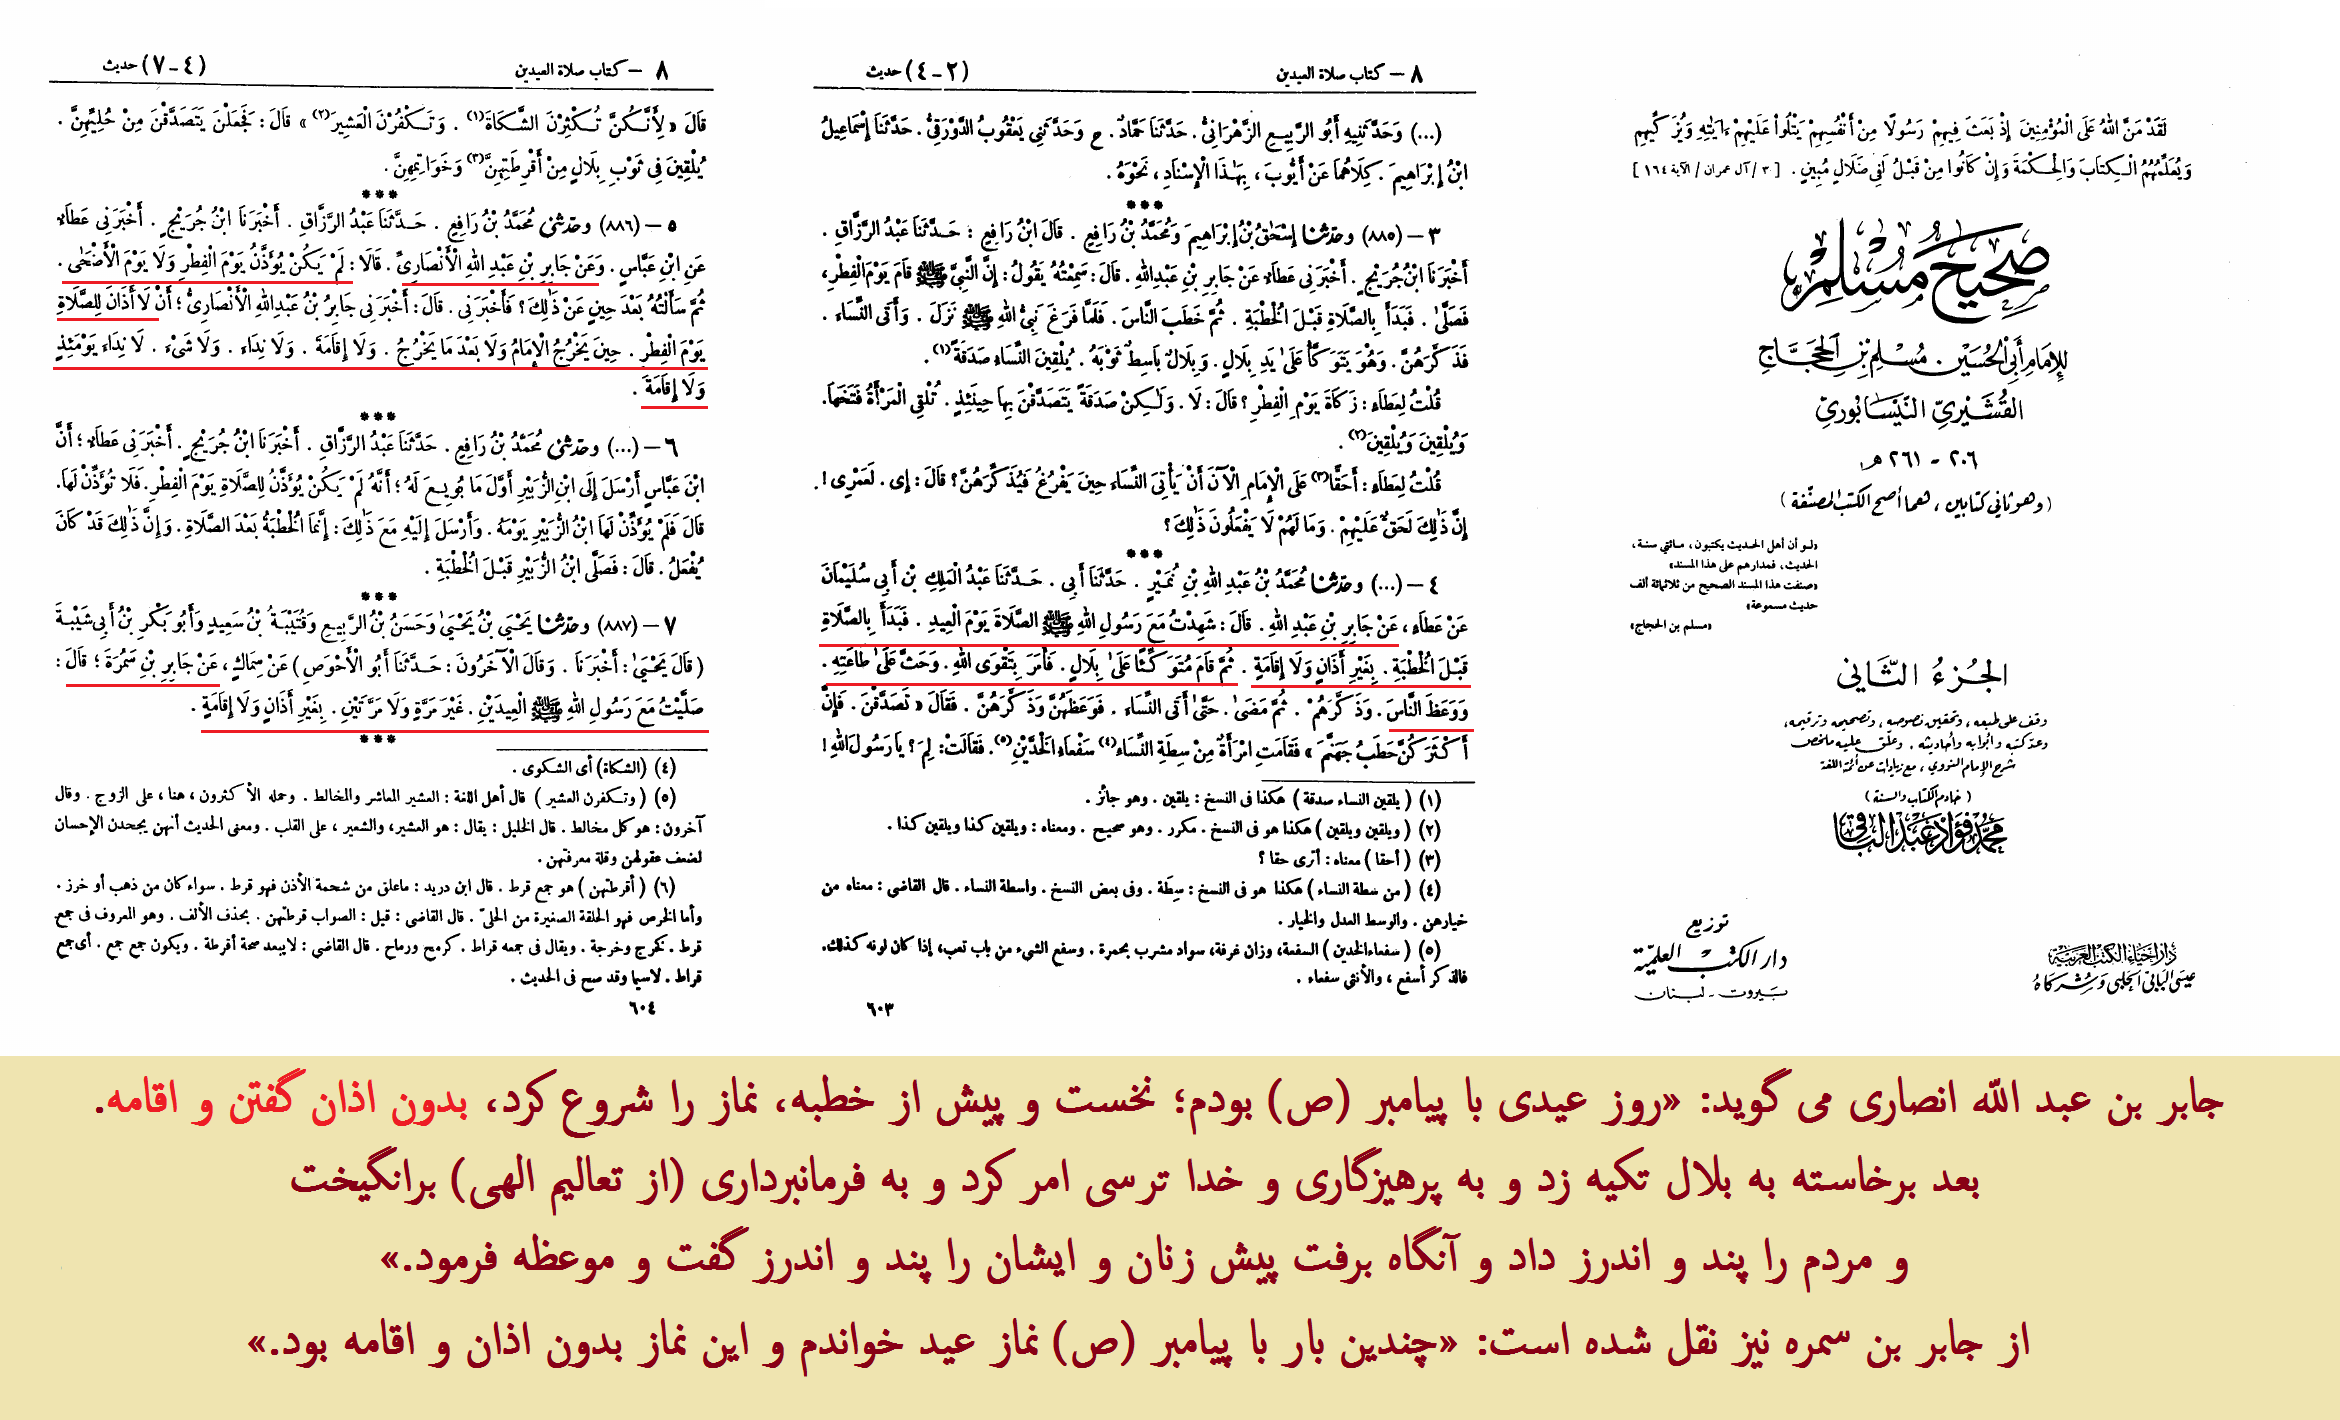 لَقَدْ مَنَّ اللهُ عَلَى الْمُؤْمِنِينَ إِذْ بَعَثَ فِيهِمْ رَسُولًا مِنْ أَنْفُسِهِمْ يَتْلُوا عَلَيْهِمْ ءَايَتِهِ وَيُزَكِّيهِمْ
وَيُعَلِّمُهُمُ الْكِتَابَ وَالْحِكْمَةَ وَإِنْ كَانُوا مِنْ قَبْلُ لَفِي ضَلَالٍ مُبِينٍ . [ ٣ / آل عمران / الآية ١٦٤ ]
صحيح مسلم
للإمام أبي الحسين . مسلم بن الحجاج
القشيري النيسابوري
٢٠٦ - ٢٦١ هـ
( وهو ثاني كتابين ، هما أصح الكتب المصنّفة )
«لو أن أهل الحديث يكتبون، مائتي سنة،
الحديث، فمدارهم على هذا المسند»
«صنفت هذا المسند الصحيح من ثلاثمائة ألف
حديث مسموعة»
«مسلم بن الحجاج»
الجزء الثاني
وقف على طبعه ، وتحقيق نصوصه ، وتصحيحه وترقيمه،
وعدّ كتبه وأبوابه وأحاديثه . وعلّق عليه ملخص
شرح الإمام النووي ، مع زيادات عن أئمة اللغة
( خادم الكتاب والسنة )
محمد فؤاد عبد الباقي
دار إحياء الكتب العربية
عيسى البابي الحلبي وشركاه
توزيع
دار الكتب العلمية
بيروت - لبنان
٨ – كتاب صلاة العيدين (٢-٤) حديث
(...) وَحَدَّثَنِيهِ أَبُو الرَّبِيعِ الزَّهْرَانِيُّ . حَدَّثَنَا حَمَّادٌ . ح وَحَدَّثَنِي يَعْقُوبُ الدَّوْرَقِيُّ . حَدَّثَنَا إِسْمَاعِيلُ
ابْنُ إِبْرَاهِيمَ . كِلَاهُمَا عَنْ أَيُّوبَ ، بِهَذَا الْإِسْنَادِ ، نَحْوَهُ .
***
٣ – (٨٨٥) وحدثنا إِسْحَقُ بْنُ إِبْرَاهِيمَ وَمُحَمَّدُ بْنُ رَافِعٍ . قَالَ ابْنُ رَافِعٍ : حَدَّثَنَا عَبْدُ الرَّزَّاقِ .
أَخْبَرَنَا ابْنُ جُرَيْجٍ . أَخْبَرَنِي عَطَاءٌ عَنْ جَابِرِ بْنِ عَبْدِ اللهِ . قَالَ : سَمِعْتُهُ يَقُولُ : إِنَّ النَّبِيَّ ﷺ قَامَ يَوْمَ الْفِطْرِ،
فَصَلَّى . فَبَدَأَ بِالصَّلَاةِ قَبْلَ الْخُطْبَةِ . ثُمَّ خَطَبَ النَّاسَ . فَلَمَّا فَرَغَ نَبِيُّ اللهِ ﷺ نَزَلَ . وَأَتَى النِّسَاءَ .
فَذَكَّرَهُنَّ . وَهُوَ يَتَوَكَّأُ عَلَى يَدِ بِلَالٍ . وَبِلَالٌ بَاسِطٌ ثَوْبَهُ . يُلْقِينَ النِّسَاءُ صَدَقَةً(١) .
قُلْتُ لِعَطَاءٍ : زَكَاةَ يَوْمِ الْفِطْرِ ؟ قَالَ : لَا . وَلَكِنْ صَدَقَةً يَتَصَدَّقْنَ بِهَا حِينَئِذٍ . تُلْقِي الْمَرْأَةُ فَتَخَهَا.
وَيُلْقِينَ وَيُلْقِينَ(٢) .
قُلْتُ لِعَطَاءٍ : أَحَقًّا(٣) عَلَى الْإِمَامِ الْآنَ أَنْ يَأْتِيَ النِّسَاءَ حِينَ يَفْرُغُ فَيُذَكِّرَهُنَّ؟ قَالَ : إِي . لَعَمْرِي !
إِنَّ ذَلِكَ لَحَقٌّ عَلَيْهِمْ . وَمَا لَهُمْ لَا يَفْعَلُونَ ذَلِكَ ؟
***
٤ – (...) وحدثنا مُحَمَّدُ بْنُ عَبْدِ اللهِ بْنِ نُمَيْرٍ . حَدَّثَنَا أَبِي . حَدَّثَنَا عَبْدُ الْمَلِكِ بْنِ أَبِي سُلَيْمَانَ
عَنْ عَطَاءٍ ، عَنْ جَابِرِ بْنِ عَبْدِ اللهِ . قَالَ : شَهِدْتُ مَعَ رَسُولِ اللهِ ﷺ الصَّلَاةَ يَوْمَ الْعِيدِ . فَبَدَأَ بِالصَّلَاةِ
قَبْلَ الْخُطْبَةِ . بِغَيْرِ أَذَانٍ وَلَا إِقَامَةٍ . ثُمَّ قَامَ مُتَوَكِّئًا عَلَى بِلَالٍ . فَأَمَرَ بِتَقْوَى اللهِ . وَحَثَّ عَلَى طَاعَتِهِ .
وَوَعَظَ النَّاسَ . وَذَكَّرَهُمْ . ثُمَّ مَضَى . حَتَّى أَتَى النِّسَاءَ . فَوَعَظَهُنَّ وَذَكَّرَهُنَّ . فَقَالَ « تَصَدَّقْنَ . فَإِنَّ
أَكْثَرَكُنَّ حَطَبُ جَهَنَّمَ » فَقَامَتِ امْرَأَةٌ مِنْ سِطَةِ النِّسَاءِ(٤) سَفْعَاءُ الْخَدَّيْنِ(٥) . فَقَالَتْ : لِمَ ؟ يَا رَسُولَ اللهِ !
(١) ( يلقين النساء صدقة ) هكذا في النسخ : يلقين . وهو جائز .
(٢) ( ويلقين ويلقين ) هكذا هو في النسخ . مكرر . وهو صحيح . ومعناه : ويلقين كذا ويلقين كذا .
(٣) ( أحقا ) معناه : أترى حقا ؟
(٤) ( من سطة النساء ) هكذا هو في النسخ : سِطَة . وفي بعض النسخ . واسطة النساء . قال القاضي : معناه من
خيارهن . والوسط العدل والخيار .
(٥) ( سفعاء الخدين ) السفعة، وزان غرفة، سواد مشرب بحمرة . وسفع الشيء من باب تعب، إذا كان لونه كذلك.
فالذكر أسفع ، والأنثى سفعاء .
٦٠٣
٨ – كتاب صلاة العيدين (٤-٧) حديث
قَالَ « لِأَنَّكُنَّ تُكْثِرْنَ الشَّكَاةَ(١) . وَتَكْفُرْنَ الْعَشِيرَ(٢) » قَالَ : فَجَعَلْنَ يَتَصَدَّقْنَ مِنْ حُلِيِّهِنَّ .
يُلْقِينَ فِي ثَوْبِ بِلَالٍ مِنْ أَقْرِطَتِهِنَّ(٣) وَخَوَاتِمِهِنَّ .
***
٥ – (٨٨٦) وحدثني مُحَمَّدُ بْنُ رَافِعٍ . حَدَّثَنَا عَبْدُ الرَّزَّاقِ . أَخْبَرَنَا ابْنُ جُرَيْجٍ . أَخْبَرَنِي عَطَاءٌ
عَنِ ابْنِ عَبَّاسٍ . وَعَنْ جَابِرِ بْنِ عَبْدِ اللهِ الْأَنْصَارِيِّ . قَالَا : لَمْ يَكُنْ يُؤَذَّنُ يَوْمَ الْفِطْرِ وَلَا يَوْمَ الْأَضْحَى .
ثُمَّ سَأَلْتُهُ بَعْدَ حِينٍ عَنْ ذَلِكَ ؟ فَأَخْبَرَنِي . قَالَ : أَخْبَرَنِي جَابِرُ بْنُ عَبْدِ اللهِ الْأَنْصَارِيُّ ؛ أَنْ لَا أَذَانَ لِلصَّلَاةِ
يَوْمَ الْفِطْرِ . حِينَ يَخْرُجُ الْإِمَامُ وَلَا بَعْدَ مَا يَخْرُجُ . وَلَا إِقَامَةَ . وَلَا نِدَاءَ . وَلَا شَيْءَ . لَا نِدَاءَ يَوْمَئِذٍ
وَلَا إِقَامَةَ .
***
٦ – (...) وحدثني مُحَمَّدُ بْنُ رَافِعٍ . حَدَّثَنَا عَبْدُ الرَّزَّاقِ . أَخْبَرَنَا ابْنُ جُرَيْجٍ . أَخْبَرَنِي عَطَاءٌ ؛ أَنَّ
ابْنَ عَبَّاسٍ أَرْسَلَ إِلَى ابْنِ الزُّبَيْرِ أَوَّلَ مَا بُويِعَ لَهُ ؛ أَنَّهُ لَمْ يَكُنْ يُؤَذَّنُ لِلصَّلَاةِ يَوْمَ الْفِطْرِ . فَلَا تُؤَذِّنْ لَهَا.
قَالَ فَلَمْ يُؤَذِّنْ لَهَا ابْنُ الزُّبَيْرِ يَوْمَهُ . وَأَرْسَلَ إِلَيْهِ مَعَ ذَلِكَ : إِنَّمَا الْخُطْبَةُ بَعْدَ الصَّلَاةِ . وَإِنَّ ذَلِكَ قَدْ كَانَ
يُفْعَلُ . قَالَ : فَصَلَّى ابْنُ الزُّبَيْرِ قَبْلَ الْخُطْبَةِ .
***
٧ – (٨٨٧) وحدثنا يَحْيَى بْنُ يَحْيَى وَحَسَنُ بْنُ الرَّبِيعِ وَقُتَيْبَةُ بْنُ سَعِيدٍ وَأَبُو بَكْرِ بْنُ أَبِي شَيْبَةَ
( قَالَ يَحْيَى : أَخْبَرَنَا . وَقَالَ الْآخَرُونَ : حَدَّثَنَا أَبُو الْأَحْوَصِ ) عَنْ سِمَاكٍ ، عَنْ جَابِرِ بْنِ سَمُرَةَ ؛ قَالَ :
صَلَّيْتُ مَعَ رَسُولِ اللهِ ﷺ الْعِيدَيْنِ . غَيْرَ مَرَّةٍ وَلَا مَرَّتَيْنِ . بِغَيْرِ أَذَانٍ وَلَا إِقَامَةٍ .
***
(٤) (الشكاة) أي الشكوى .
(٥) ( وتكفرن العشير ) قال أهل اللغة : العشير المعاشر والمخالط . وحمله الأكثرون ، هنا ، على الزوج . وقال
آخرون : هو كل مخالط . قال الخليل : يقال : هو العشير، والشعير ، على القلب . ومعنى الحديث أنهن يجحدن الإحسان
لضعف عقولهن وقلة معرفتهن .
(٦) ( أقرطتهن ) هو جمع قرط . قال ابن دريد : ماعلق من شحمة الأذن فهو قرط . سواء كان من ذهب أو خرز .
وأما الخرص فهو الحلقة الصغيرة من الحليّ . قال القاضي : قيل : الصواب قرطتهن . بحذف الألف . وهو المعروف في جمع
قرط . كخرج وخرجة . ويقال في جمعه قراط . كرمح ورماح . قال القاضي : لايبعد صحة أقرطة . ويكون جمع جمع . أي جمع
قراط . لاسيما وقد صح في الحديث .
٦٠٤
جابر بن عبد الله انصاری می گوید: «روز عیدی با پیامبر (ص) بودم؛ نخست و پیش از خطبه، نماز را شروع کرد، بدون اذان گفتن و اقامه.
بعد برخاسته به بلال تکیه زد و به پرهیزگاری و خدا ترسی امر کرد و به فرمانبرداری (از تعالیم الهی) برانگیخت
و مردم را پند و اندرز داد و آنگاه برفت پیش زنان و ایشان را پند و اندرز گفت و موعظه فرمود.»
از جابر بن سمره نیز نقل شده است: «چندین بار با پیامبر (ص) نماز عید خواندم و این نماز بدون اذان و اقامه بود.»